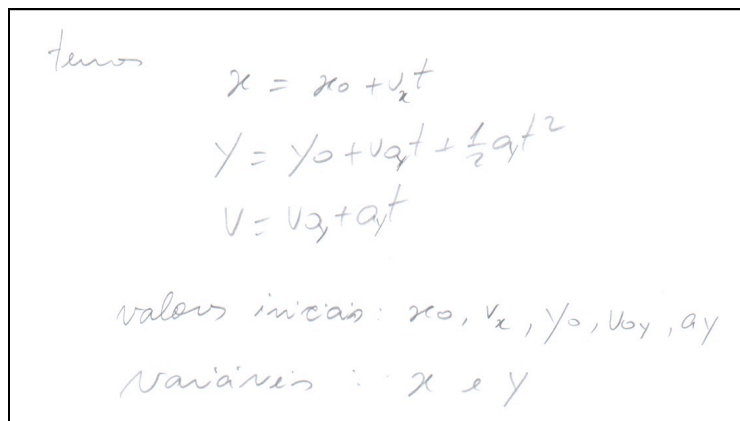 temos
x = x₀ + vₓt
y = y₀ + v₀yt + ½ayt²
v = v₀y + ayt
valores iniciais: x₀, vₓ, y₀, v₀y, ay
variáveis : x e y